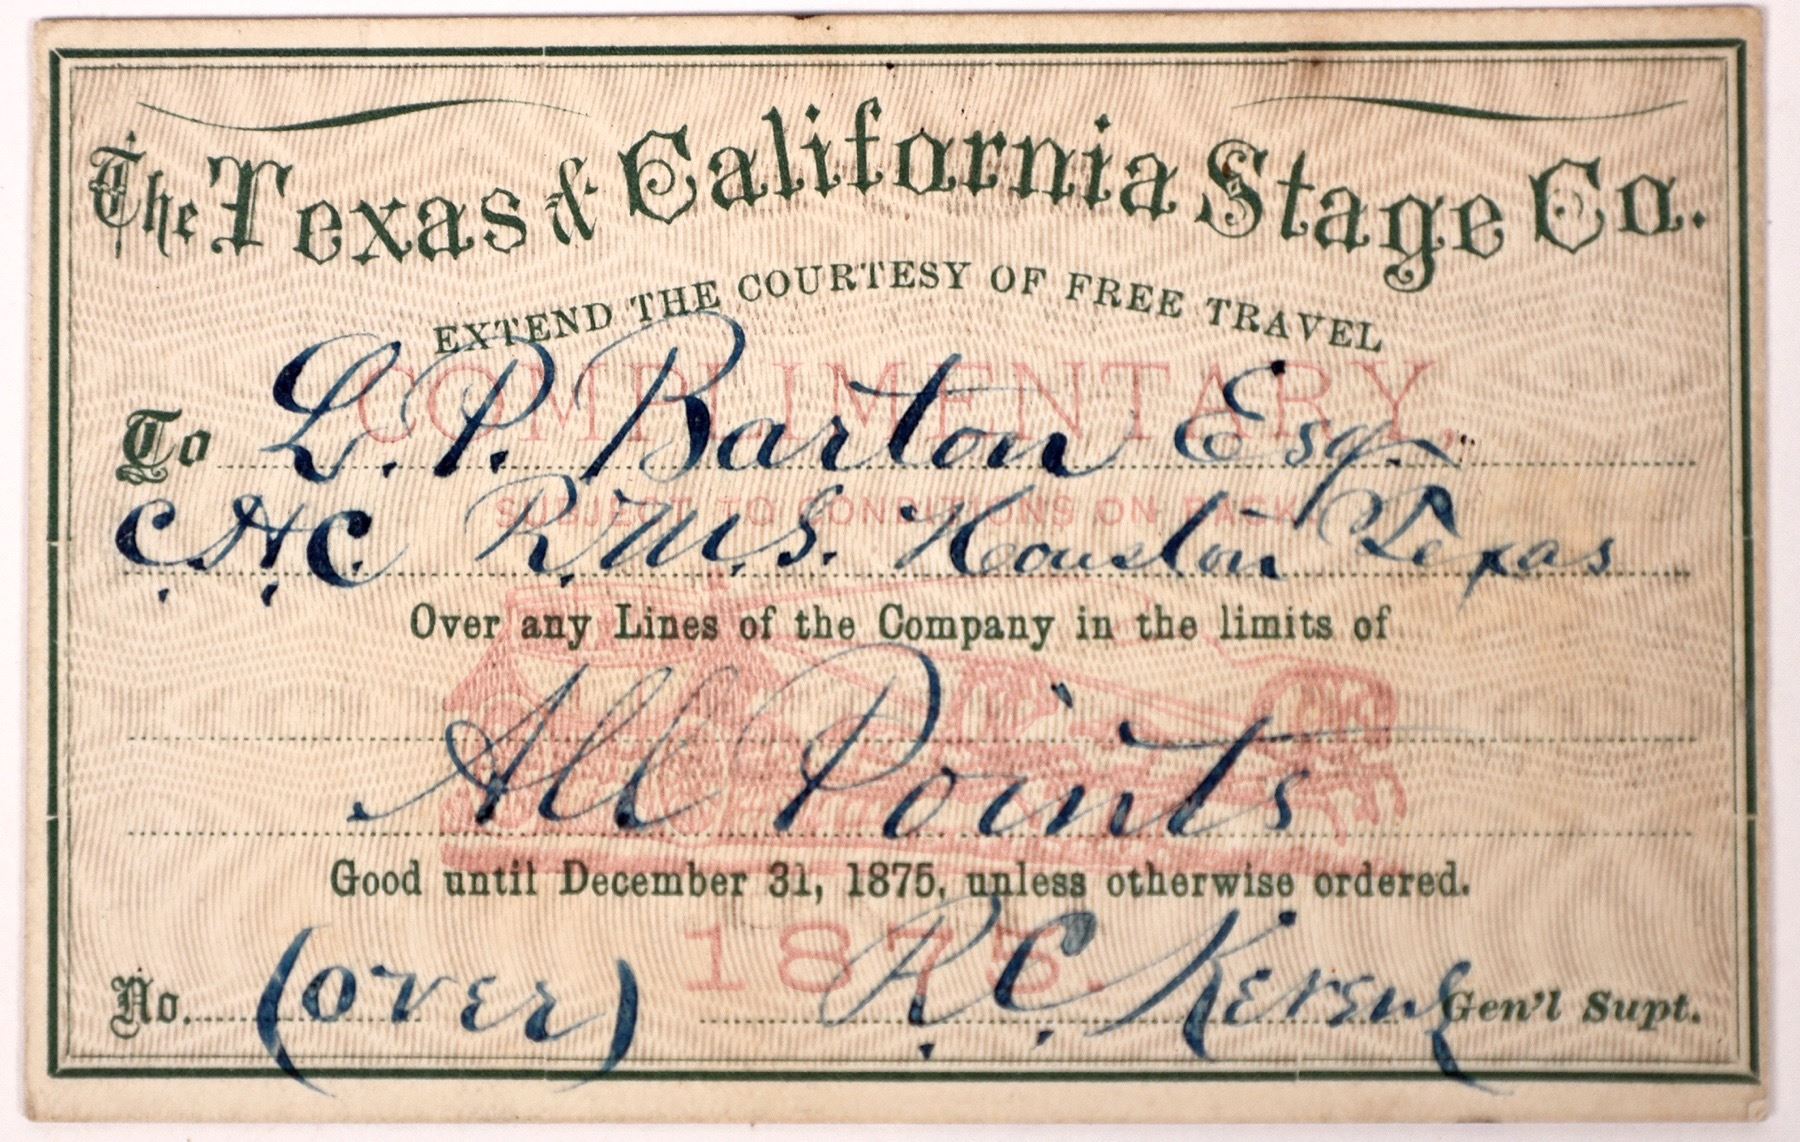 The Texas & California Stage Co.
EXTEND THE COURTESY OF FREE TRAVEL
COMPLIMENTARY,
To L. P. Barton Esq.
SUBJECT TO CONDITIONS ON BACK
C. H. C. R. M. S. Houston Texas
Over any Lines of the Company in the limits of
All Points
Good until December 31, 1875, unless otherwise ordered.
1875.
No. (over) R. C. Kerens Gen'l Supt.